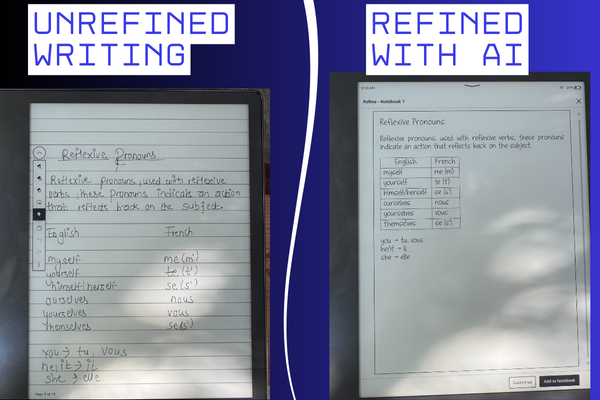 UNREFINED
WRITING
Reflexive Pronouns
Reflexive pronouns, used with reflexive
verbs, these pronouns indicate an action
that reflects back on the subject.
English French
myself me (m')
yourself te (t')
himself/herself se (s')
ourselves nous
yourselves vous
themselves se(s')
you → tu, vous
he/it → il
she → elle
REFINED
WITH AI
Refine - Notebook 1
Reflexive Pronouns
Reflexive pronouns, used with reflexive verbs, these pronouns
indicate an action that reflects back on the subject.
English French
myself me (m)
yourself te (t')
himself/herself se (s')
ourselves nous
yourselves vous
themselves se (s')
you → tu, vous
he/it → il
she → elle
Customize Add to Notebook